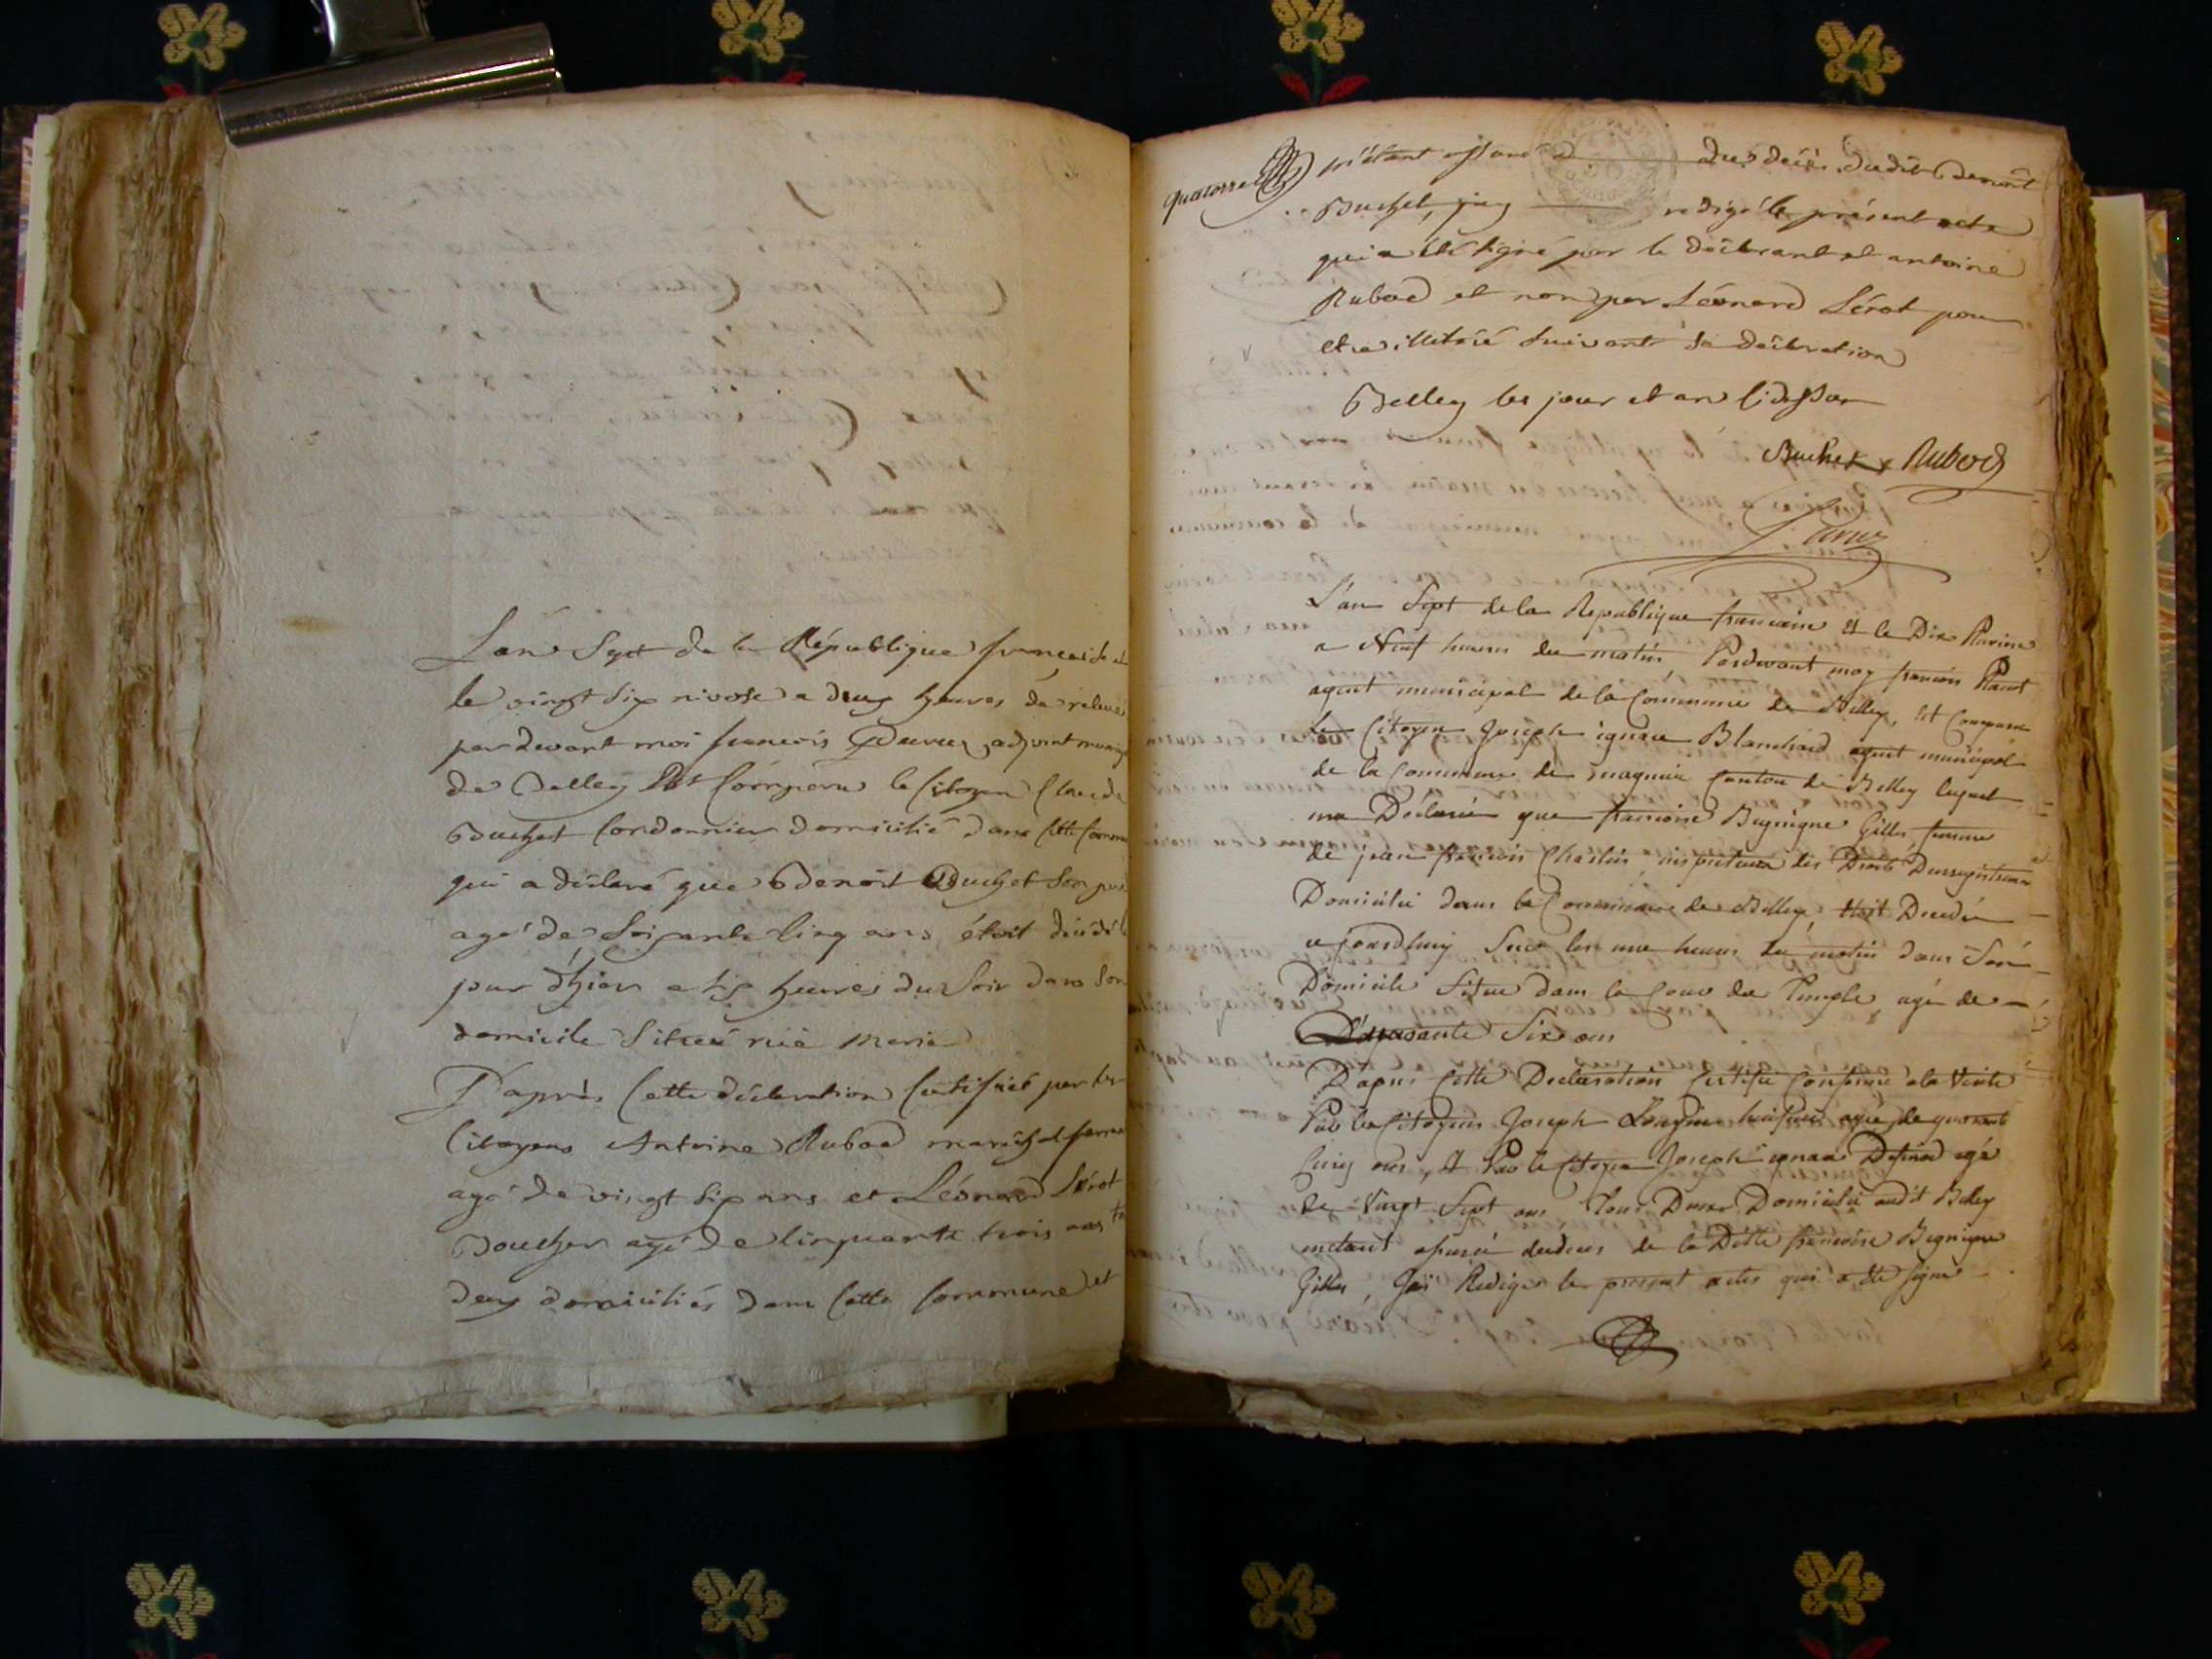 L'an Sept de la République française et
le vingt six nivose a deux heures de relevée
par devant moi francois adjoint municip
de Belley Est Comparu le Citoyen Claude
Buchet Cordonnier domicilié dans cette Commu
qui a déclaré que Benoit Buchet Son per
agé de Soixante Cinq ans étoit décédé l
jour d'hier a six heures du Soir dans Son
domicile Situé rüe
D'après Cette déclaration Certifiée par les
Citoyens Antoine Rubod maréchal ferran
agé de vingt six ans et Léonard Lérot
Boucher agé de Cinquante trois ans to
deux domiciliés dans Cette Commune et
quatorze
m'étant assuré du décès dudit Benoit
Buchet, j'ay redigé le présent acte
qui a été signé par le déclarant et antoine
Rubod et non par Léonard Lérot pour
etre illitéré Suivant sa déclaration
Belley les jour et an Cidessus
Buchet Rubod
L'an Sept de la Republique francaise et le Dix Pluviose
a Neuf heures du matin, Pardevant moy francois
agent municipal de la Commune de Belley, est Comparu
Le Citoyen Joseph ignace Blanchard agent municipal
de la Commune de magnieu Canton de Belley lequel
ma Déclaré que francoise Bugnigne Gillet femme
de jean francois Chastin, inspecteur des Droits Denregistrement
Domicilié dans la Commune de Belley, étoit Decedée
ajourdhuy Sur les une heures du matin dans Son
Domicile Situé dans la Cour du Temple, agée de
Six ans
D'apres Cette Declaration Certifié Conforme a la Verité
Par les Citoyens Joseph huissier agé de quarante
Cinq ans, et Par le Citoyen Joseph ignace agé
de Vingt Sept ans Tous Deux Domicilié audit Belley
metant assuré dudeces de la Ditte francoise Bugnigne
Gillet, Jai Redigé le present acte qui a été signé